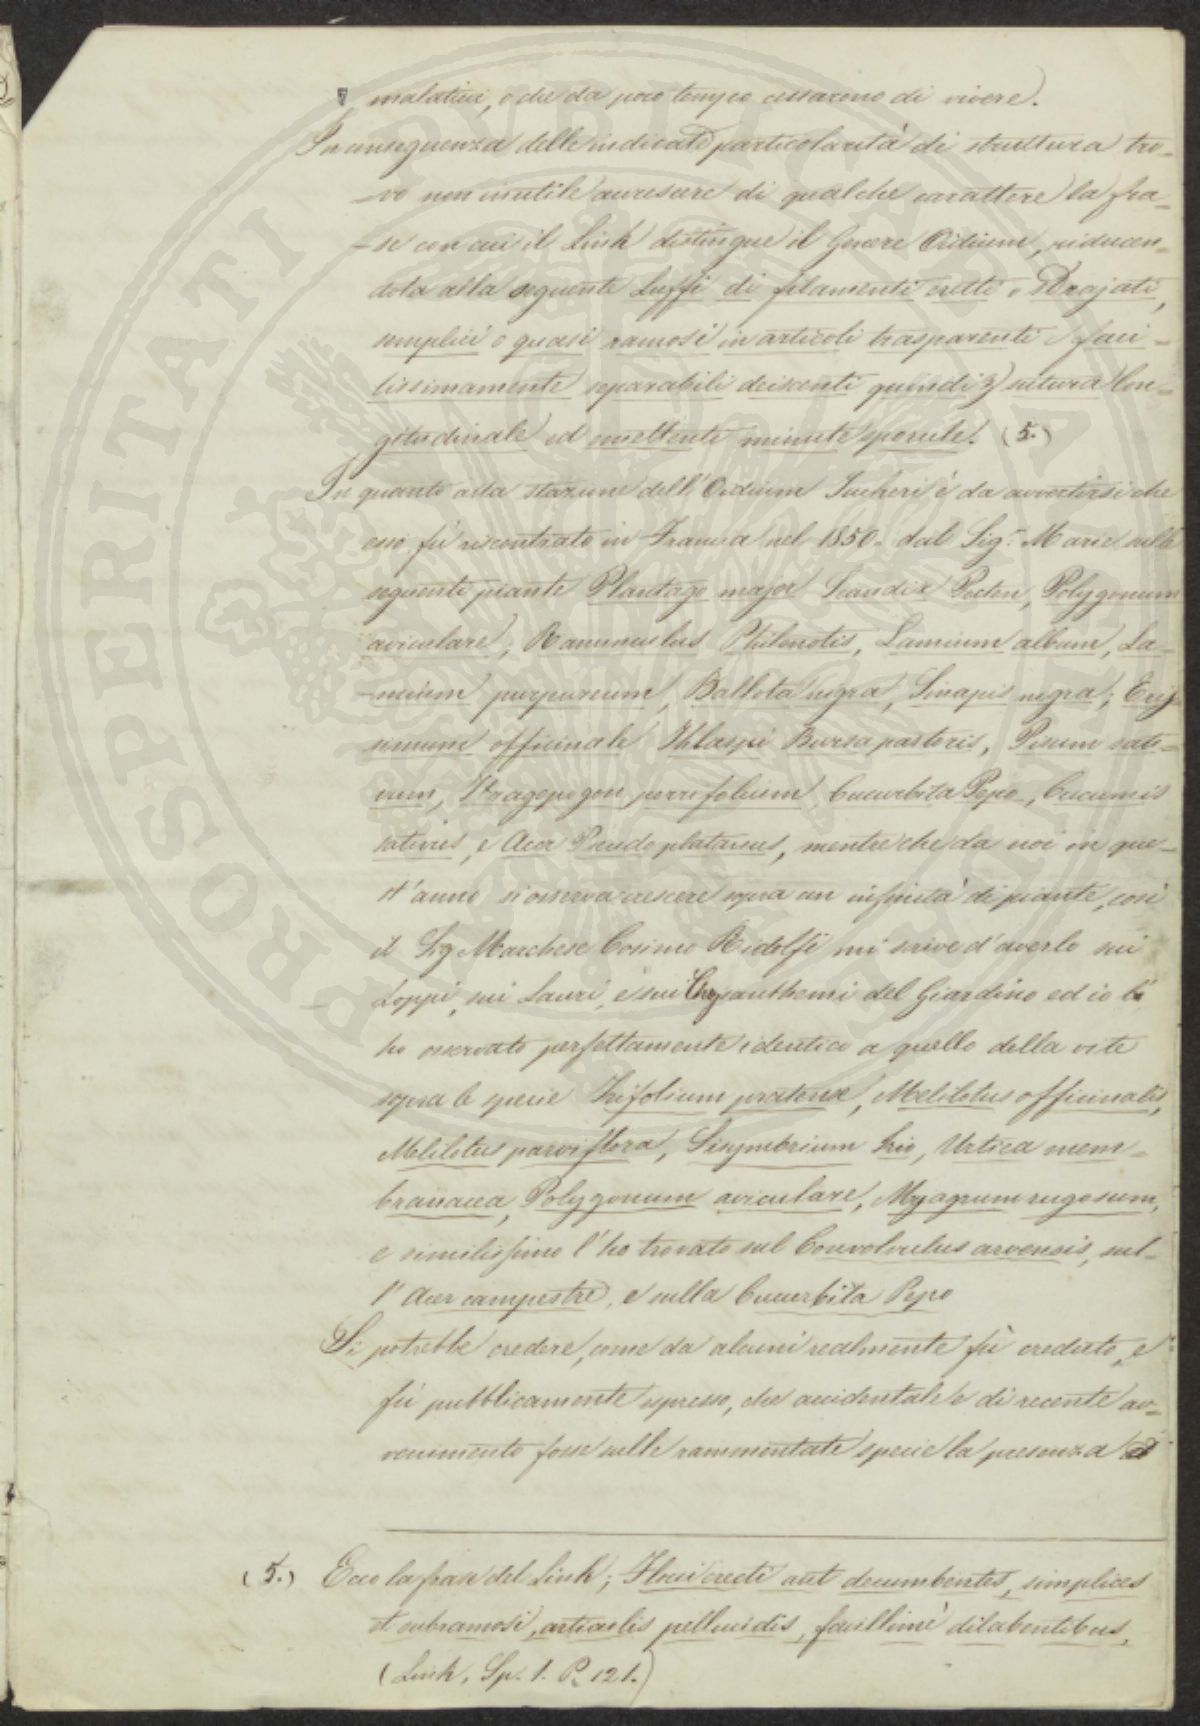 malatici, o che da poco tempo cessarono di vivere.
In conseguenza delle indicate particolarità di struttura tro-
-vo non inutile accrescere di qualche carattere la fra-
-se con cui il Link distingue il Genere Oidium, riducen-
dola alla seguente Luffi di filamenti eretti o sdrajati,
semplici o quasi ramosi in articoli trasparenti e faci-
lissimamente separabili deiscenti quindi p sutura lon-
gitudinale ed emettenti minute sporule. (5.)
In quanto alla stazione dell'Oidium Tuckeri è da avvertirsi che
esso fù riscontrato in Francia nel 1850. dal Sig.r Marie sulle
seguenti piante Plantago major Scandix Pecten, Polygonum
aviculare, Ranunculus Philonotis, Lamium album, La-
-mium purpureum, Ballota nigra, Sinapis nigra, Erij-
simum officinale Thlaspi Bursa pastoris, Pisum sati-
vum, Tragopogon porrifolium, Cucurbita Pepo, Cucumis
sativus, e Acer Pseudoplatanus, mentre che da noi in que-
st'anno si osserva crescere sopra un infinità di piante, così
il Sig Marchese Cosimo Ridolfi mi scrive d'averlo sui
Loppi, sui Lauri, e sui Chrysanthemi del Giardino ed io l'
ho osservato perfettamente identico a quello della vite
sopra le specie Trifolium pratense, Melilotus officinalis,
Melilotus parviflora, Sisymbrium Irio, Urtica mem-
branacea, Polygonum aviculare, Myagrum rugosum,
e similissimo l'ho trovato sul Convolvulus arvensis, sul-
l'Acer campestre, e sulla Cucurbita Pepo
Si potrebbe credere, come da alcuni realmente fù creduto, e
fù pubblicamente espresso, che accidentale e di recente av-
venimento fosse sulle rammentate specie la presenza d
(5.) Ecco la frase del Link; Flocci erecti aut decumbentes, simplices
et subramosi, articulis pellucidis, facillime dilabentibus,
(Link. Sp. 1. P. 121.)
PROSPERITATI PUBLICAE